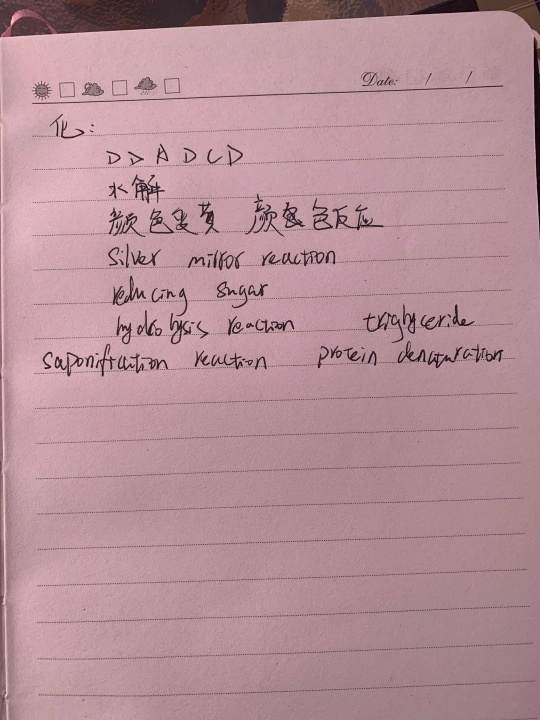 Date: / /
化:
D D A D C D
水解
颜色变黄 颜色反应
Silver mirror reaction
reducing sugar
hydrolysis reaction triglyceride
saponification reaction protein denaturation